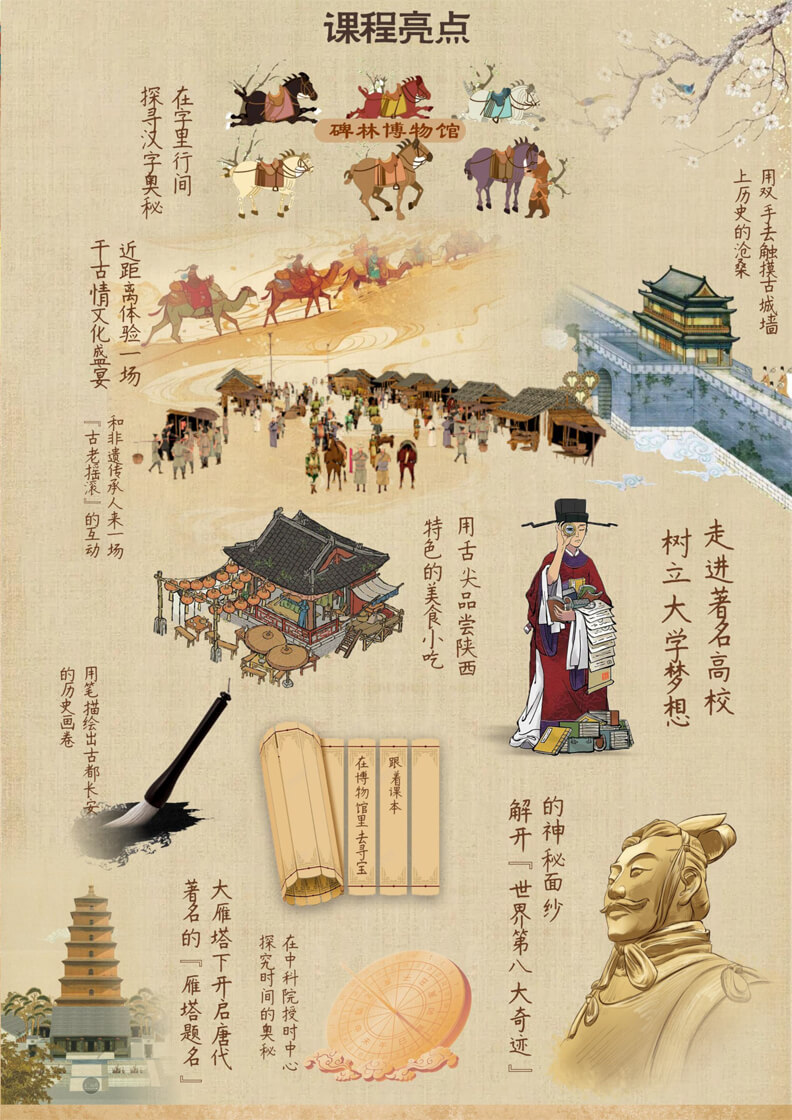 课程亮点
碑林博物馆
在字里行间
探寻汉字奥秘
用双手去触摸古城墙
上历史的沧桑
近距离体验一场
千古情文化盛宴
和非遗传承人来一场
『古老摇滚』的互动
用舌尖品尝陕西
特色的美食小吃
走进著名高校
树立大学梦想
用笔描绘出古都长安
的历史画卷
跟着课本
在博物馆里去寻宝
的神秘面纱
解开『世界第八大奇迹』
大雁塔下开启唐代
著名的『雁塔题名』
在中科院授时中心
探究时间的奥秘